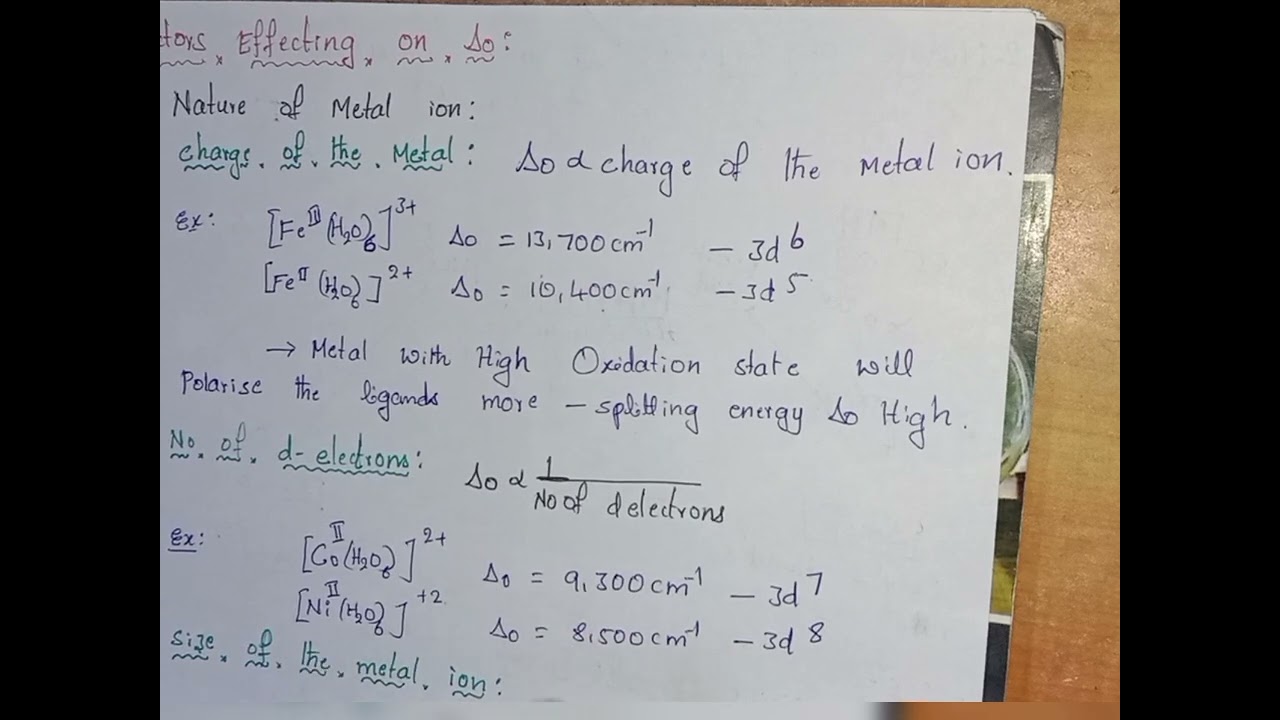 tors Effecting on Δo:
Nature of Metal ion:
charge of the Metal: Δo α charge of the Metal ion.
Ex: [Fe^III(H2O)6]^3+ Δo = 13,700 cm^-1 - 3d^6
[Fe^II(H2O)6]^2+ Δo = 10,400 cm^-1 - 3d^5
→ Metal with High Oxidation state will
Polarise the ligands more - splitting energy Δo High.
No. of d-electrons: Δo α 1/No of d electrons
Ex: [Co^II(H2O)6]^2+ Δo = 9,300 cm^-1 - 3d^7
[Ni^II(H2O)6]^+2 Δo = 8,500 cm^-1 - 3d^8
Size of the metal ion: